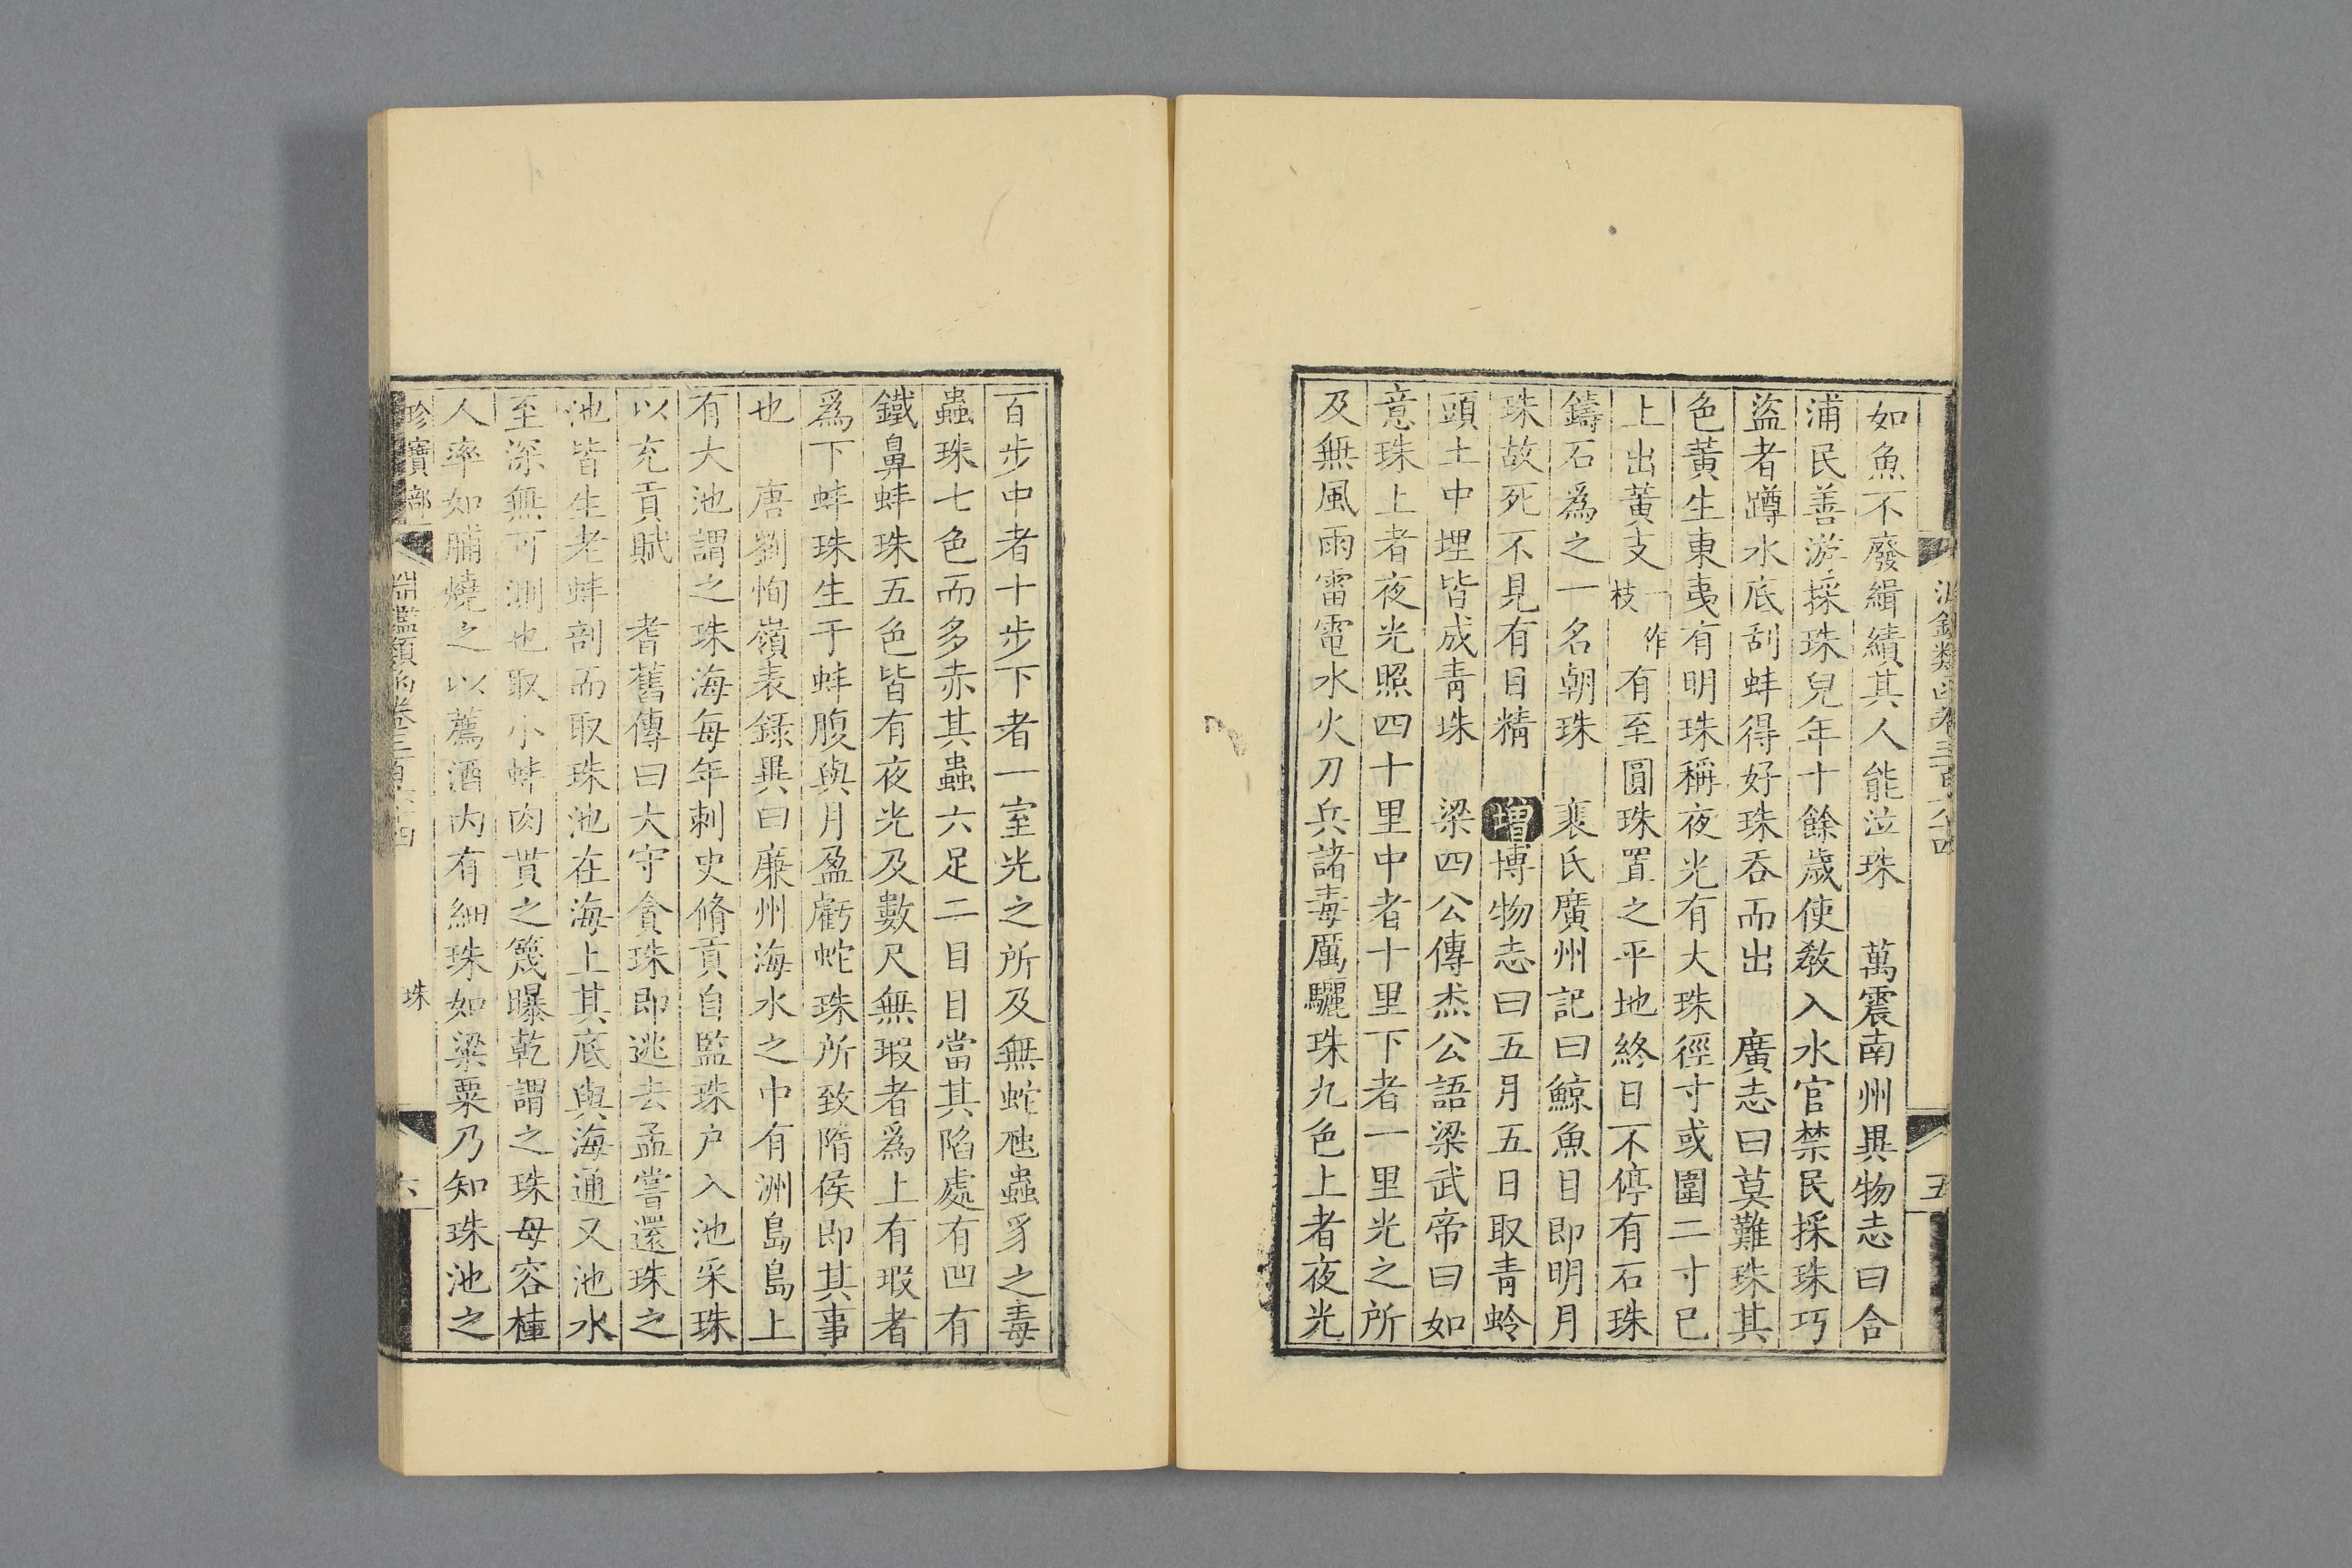 如魚不廢緝績其人能泣珠　萬震南州異物志曰合
浦民善游採珠兒年十餘歲使教入水官禁民採珠巧
盜者蹲水底刮蚌得好珠吞而出　廣志曰莫難珠其
色黃生東夷有明珠稱夜光有大珠徑寸或圍二寸已
上出黃支一作枝有至圓珠置之平地終日不停有石珠
鑄石爲之一名朝珠　裴氏廣州記曰鯨魚目即明月
珠故死不見有目精　增博物志曰五月五日取青蛉
頭土中埋皆成青珠　梁四公傳杰公語梁武帝曰如
意珠上者夜光照四十里中者十里下者一里光之所
及無風雨雷電水火刀兵諸毒厲驪珠九色上者夜光
百步中者十步下者一室光之所及無蛇虺蟲豸之毒
蟲珠七色而多赤其蟲六足二目目當其陷處有凹有
鐵鼻蚌珠五色皆有夜光及數尺無瑕者爲上有瑕者
爲下蚌珠生于蚌腹與月盈虧蛇珠所致隋侯即其事
也　唐劉恂嶺表錄異曰廉州海水之中有洲島島上
有大池謂之珠海每年刺史脩貢自監珠户入池采珠
以充貢賦　耆舊傳曰大守貪珠即逃去孟嘗還珠之
池皆生老蚌剖而取珠池在海上其底與海通又池水
至深無可測也取小蚌肉貫之篾曝乾謂之珠母容桂
人率如脯燒之以薦酒内有細珠如粱粟乃知珠池之
珍寶部　淵鑑類函卷三百六十四　珠　六